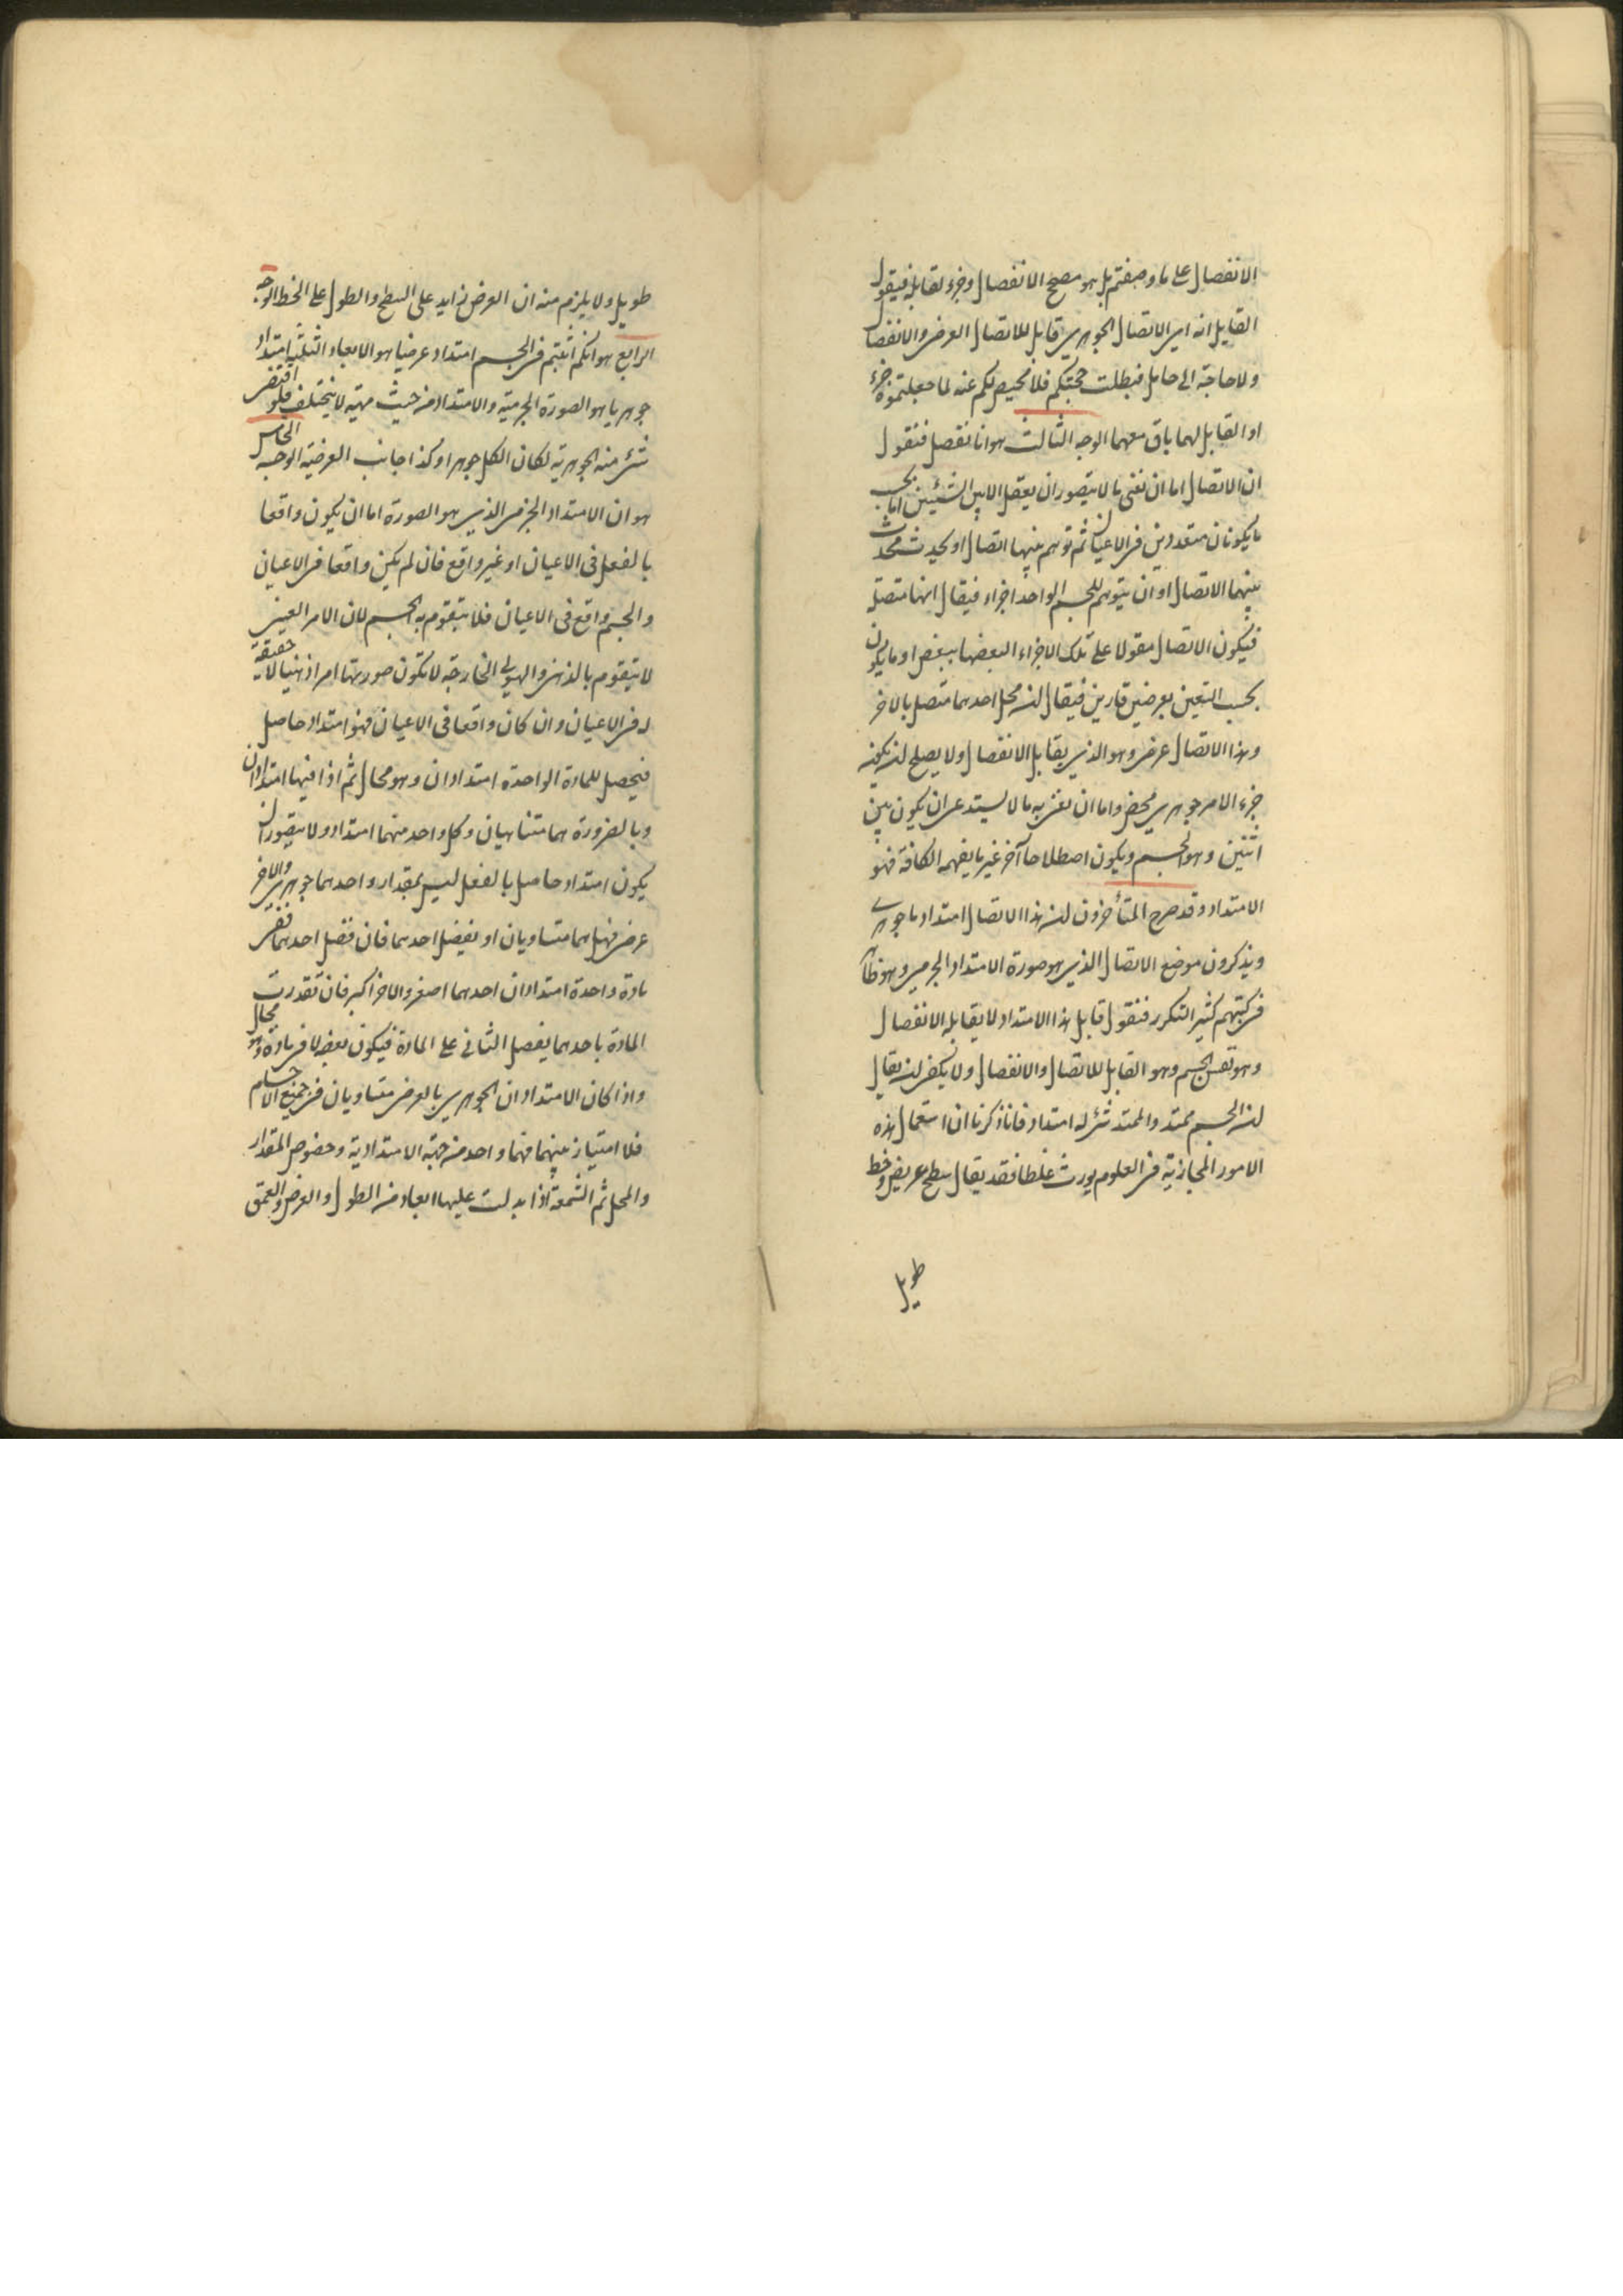 الانفصال على ما وصفتم بل هو مصحح الانفصال وجزء لقابله فيقول
القايل انه اىر الاتصال الجوهرى قابل للاتصال العرضى والانفصال
ولا حاجة الى حامل فبطلت حجتكم فلا محيص لكم عنه لما جعلتموه جزء
او القابل لهما باق معهما الوجه الثالث هو انا نفصل فنقول
ان الاتصال اما ان نعنى ما لا يتصور ان يعقل الا بين الشيئين اما بحسب
ما يكونان متعددين فى الاعيان ثم توهم بينهما اتصال او يحدث محدث
بينهما الاتصال او ان يتوهم للجسم الواحد اجزاء فيقال انها متصلة
فيكون الاتصال مقولا على تلك الاجزاء لبعضها ببعض او ما يكون
بحسب التعين بعرضين قارين فيقال ان محل احدهما متصل بالاخر
وهذا الاتصال عرض وهو الذى يقابل الانفصال ولا يصلح ان يكون
جزء الامر جوهرى محض واما ان نعنى به ما لا يستدعى ان يكون بين
اثنين وهو الجسم ويكون اصطلاحا آخر غير ما يفهمه الكافة فهو
الامتداد وقد صرح المتأخرون ان هذا الاتصال امتداد ما جوهرى
ويذكرون موضع الاتصال الذى هو صورة الامتداد الجرمى وهو ظاهر
فى كتبهم كثير التكرر فنقول قابل هذا الامتداد لا يقابله الانفصال
وهو نفس الجسم وهو القابل للاتصال والانفصال ولا يكفى ان يقال
ان الجسم ممتد والممتد شئ له امتداد فانا ذكرنا ان استعمال هذه
الامور المجازية فى العلوم يورث غلطا فقد يقال سطح عريض وخط
طويل
طويل ولا يلزم منه ان العرض زايد على السطح والطول على الخط الوجه
الرابع هو انكم اثبتم فى الجسم امتداد عرضيا هو الابعاد الثلثة امتدادا
جوهريا هو الصورة الجرمية والامتداد من حيث مهيته لا يختلف فلو اقتضى
شئ منه الجوهرية لكان الكل جوهرا وكذا جانب العرضية الوجه الخامس
هو ان الامتداد الجرمى الذى هو الصورة اما ان يكون واقعا
بالفعل فى الاعيان او غير واقع فان لم يكن واقعا فى الاعيان
والجسم واقع فى الاعيان فلا يتقوم به الجسم لان الامر العينى
لا يتقوم بالذهنى والهيولى الخارجة لا تكون صورتها امرا ذهنيا لا حقيقة
له فى الاعيان وان كان واقعا فى الاعيان فهو امتداد حاصل
فيحصل للمادة الواحدة امتدادان وهو محال ثم اذا فيها امتدادان
وبالضرورة هما متناهيان وكل واحد منهما امتداد ولا يتصور ان
يكون امتداد حاصل بالفعل ليس بمقدار واحدهما جوهرى والاخر
عرضى فهل هما متساويان او يفضل احدهما فان فضل احدهما ففى
مادة واحدة امتدادان احدهما اصغر والاخر اكبر فان تقدرت
المادة باحدهما يفضل الثانى على المادة فيكون بعضه لا فى مادة وهو محال
واذا كان الامتدادان الجوهرى بالعرض متساويان فى جميع الاجسام
فلا امتياز بينهما فهما واحد من جهة الامتدادية وخصوص المقدار
والمحل ثم الشمعة اذا بدلت عليها ابعاد من الطول والعرض والعمق